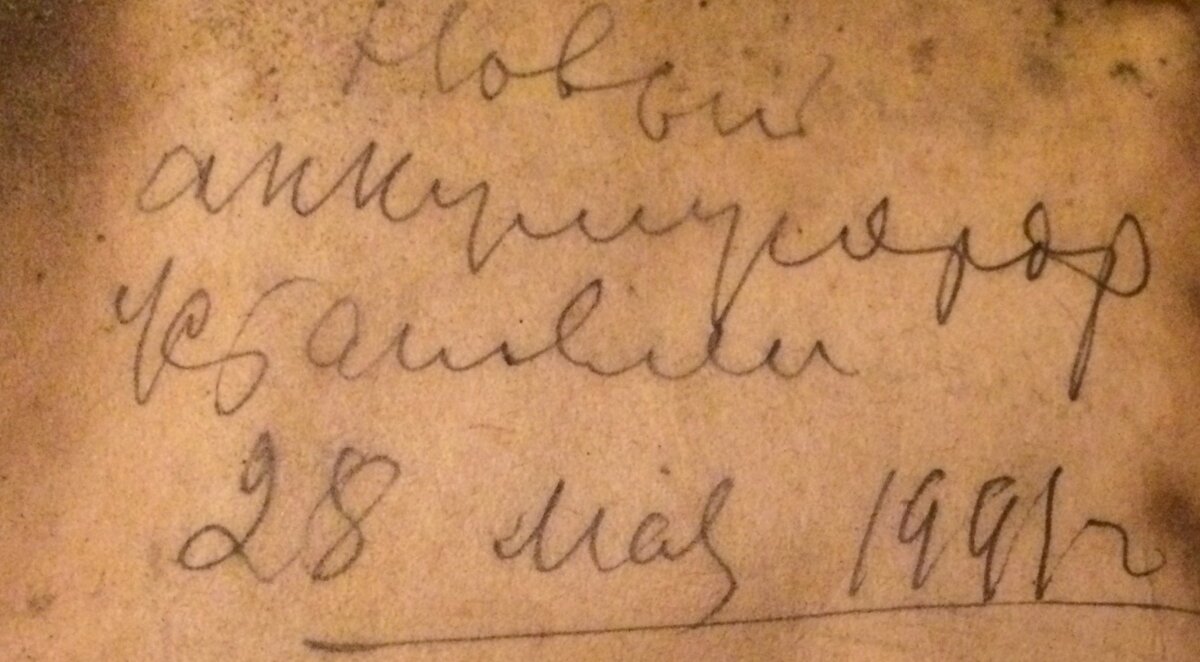 Новый
аккумулятор
Установлен
28 мая 1991г